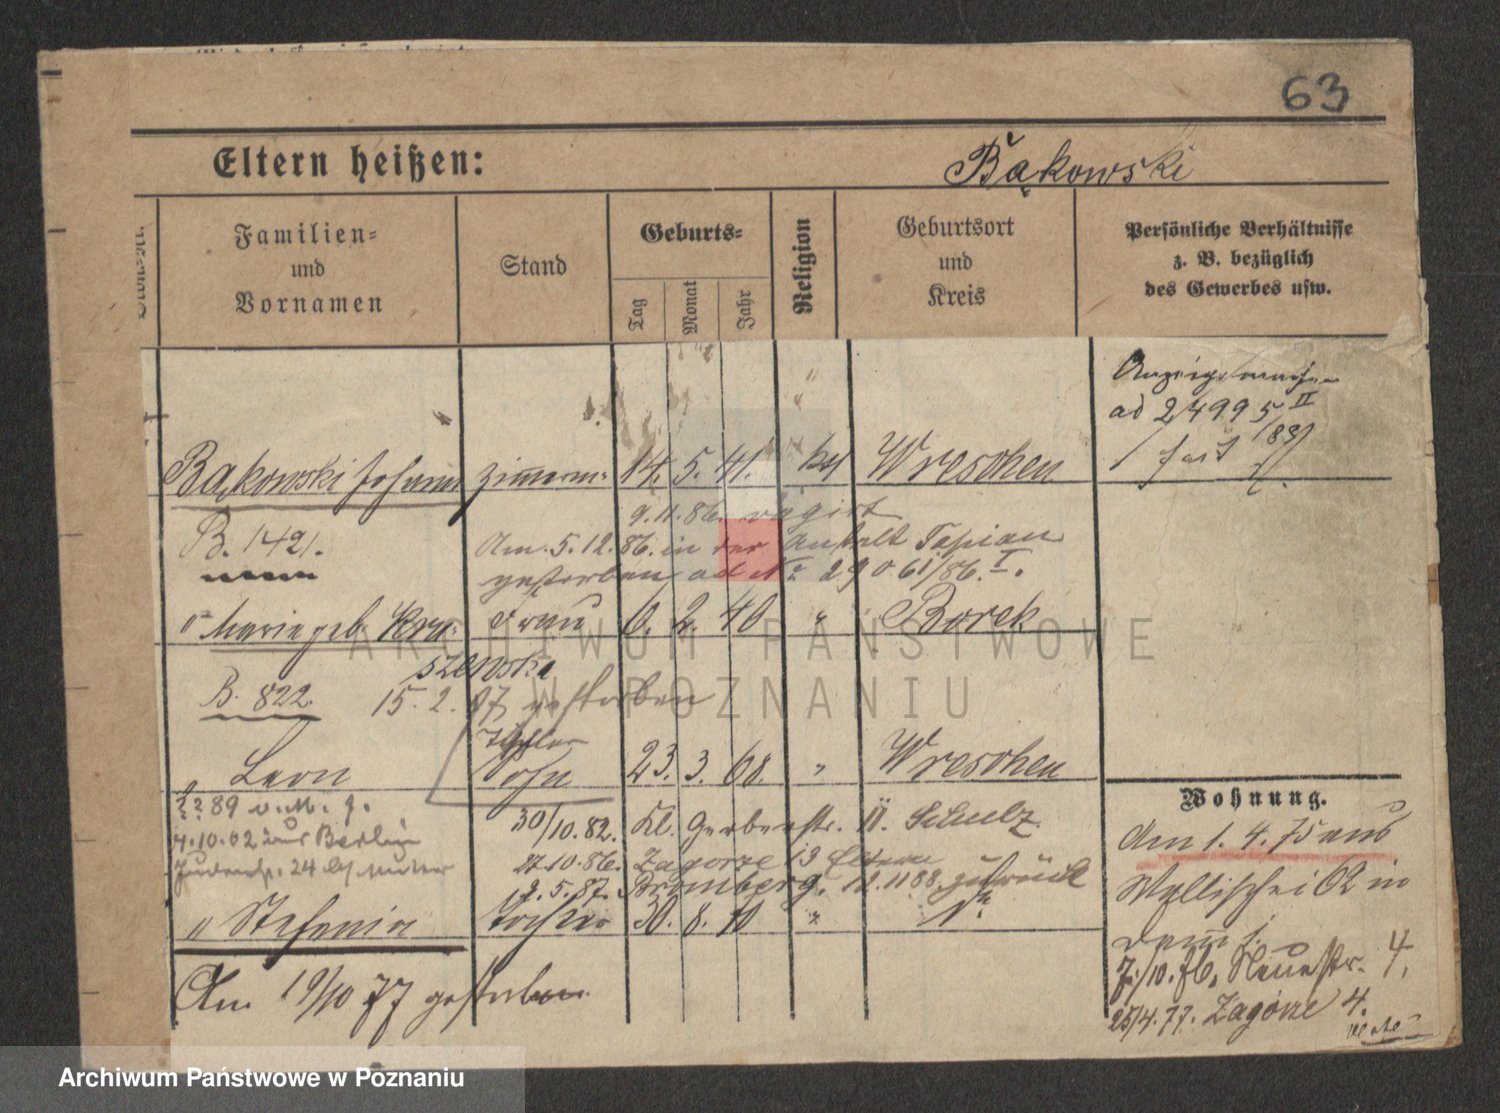 63
Eltern heißen:
Bąkowski
Familien-
und
Vornamen
Stand
Geburts-
Tag
Monat
Jahr
Religion
Geburtsort
und
Kreis
Persönliche Verhältnisse
z. B. bezüglich
des Gewerbes usw.
ad 2499 5 II
Bąkowski Johann Zimmerm. 14. 5. 41. kat Wreschen
B. 1421.
9.11.86.
Am 5.12.86. in der Anstalt Tapiau
gestorben ad No 29061/86. I.
" Marie geb. Kra- Frau 6. 2. 40 " Borek
szewska
B. 822. 15. 2. 97 gestorben
" Leon Tischler
Sohn 23. 3. 68. " Wreschen
89 v. M. f.
4.10.02 zur Berlin
24 Mutter
30/10.82. Kl. Gerberstr. 11. Schulz
27.10.86. Zagorze 13 Eltern
12.5.87. Bromberg. 12.11 88 zurück
" Stefania Tochter 30. 8. 70 "
Am 19/10 77 gestorben
Wohnung.
Am 1. 4. 75 aus
Wallischei 62 in
7./10. 76, Neuestr. 4.
25/4.77. Zagorze 4.
ARCHIWUM PAŃSTWOWE
W POZNANIU
Archiwum Państwowe w Poznaniu